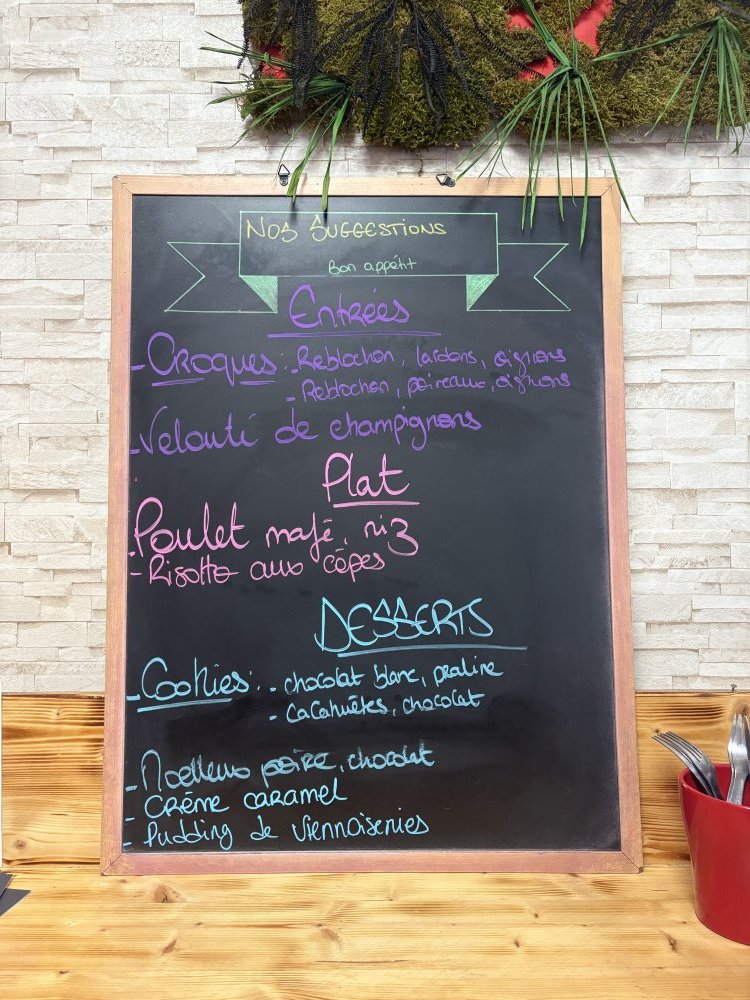 Nos Suggestions
Bon appétit
Entrées
- Croques : - Reblochon, lardons, oignons
- Reblochon, poireaux, oignons
- Velouté de champignons
Plat
- Poulet mafé, riz
- Risotto aux cèpes
DESSERTS
- Cookies : - chocolat blanc, praline
- Cacahuètes, chocolat
- Moelleux poire, chocolat
- Crème caramel
- Pudding de viennoiseries